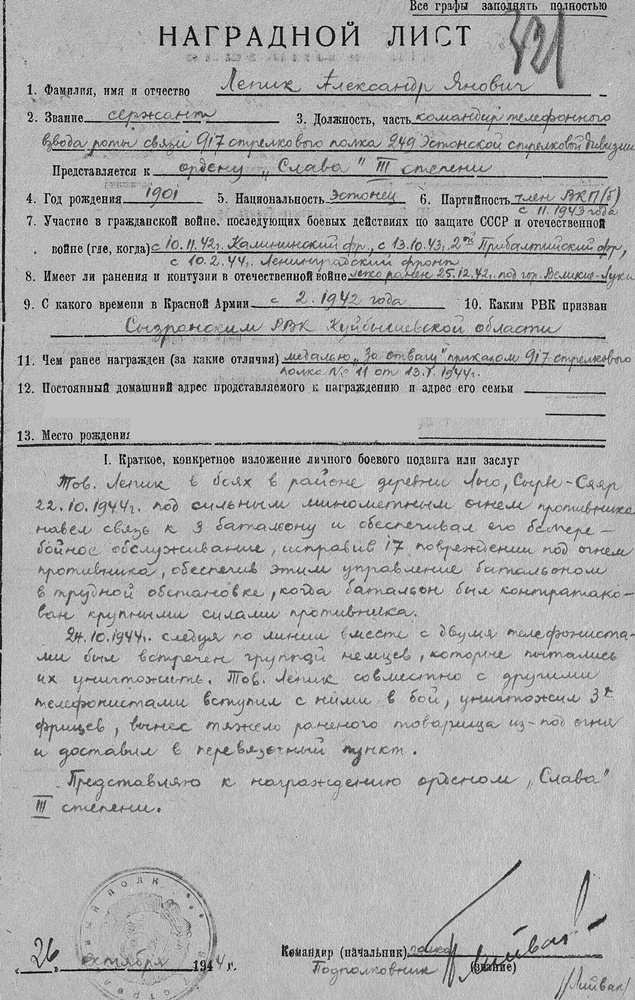 Все графы заполнять полностью
НАГРАДНОЙ ЛИСТ
421
1. Фамилия, имя и отчество Лепик Александр Янович
2. Звание сержант 3. Должность, часть командир телефонного
взвода роты связи 917 стрелкового полка 249 Эстонской стрелковой дивизии
Представляется к ордену „Слава" III степени
4. Год рождения 1901 5. Национальность Эстонец 6. Партийность член ВКП(б)
с II. 1943 года
7. Участие в гражданской войне, последующих боевых действиях по защите СССР и отечественной
войне (где, когда) с 10.11.42г. Калининский фр., с 13.10.43г. 2ой Прибалтийский фр,
с 10.2.44г. Ленинградский фронт
8. Имеет ли ранения и контузии в отечественной войне легко ранен 25.12.42г. под гор. Великие-Луки
9. С какого времени в Красной Армии с 2. 1942 года 10. Каким РВК призван
Сызранским РВК Куйбышевской области
11. Чем ранее награжден (за какие отличия) медалью „За отвагу" приказом 917 стрелкового
полка № 11 от 13.V.1944г.
12. Постоянный домашний адрес продставляемого к награждению и адрес его семьи
13. Место рождения
I. Краткое, конкретное изложение личного боевого подвига или заслуг
Тов. Лепик в боях в районе деревни Лыо, Сырве-Сяяр
22.10.1944г. под сильным минометным огнем противника
навел связь к 3 батальону и обеспечивал его бесперe-
бойное обслуживание, исправив 17 повреждении под огнем
противника, обеспечив этим управление батальоном
в трудной обстановке, когда батальон был контратако-
ван крупными силами противника.
24.10.1944г. следуя по линии вместе с двумя телефониста-
ми был встречен группой немцев, которые пытались
их уничтожить. Тов. Лепик совместно с другими
телефонистами вступил с ними в бой, уничтожил 3х
фрицев, вынес тяжело раненого товарища из-под огня
и доставил в перевязочный пункт.
Представляю к награждению орденом „Слава"
III степени.
Командир (начальник) полка
„26" октября 1944 г. Подполковник (звание)
/Лийван/